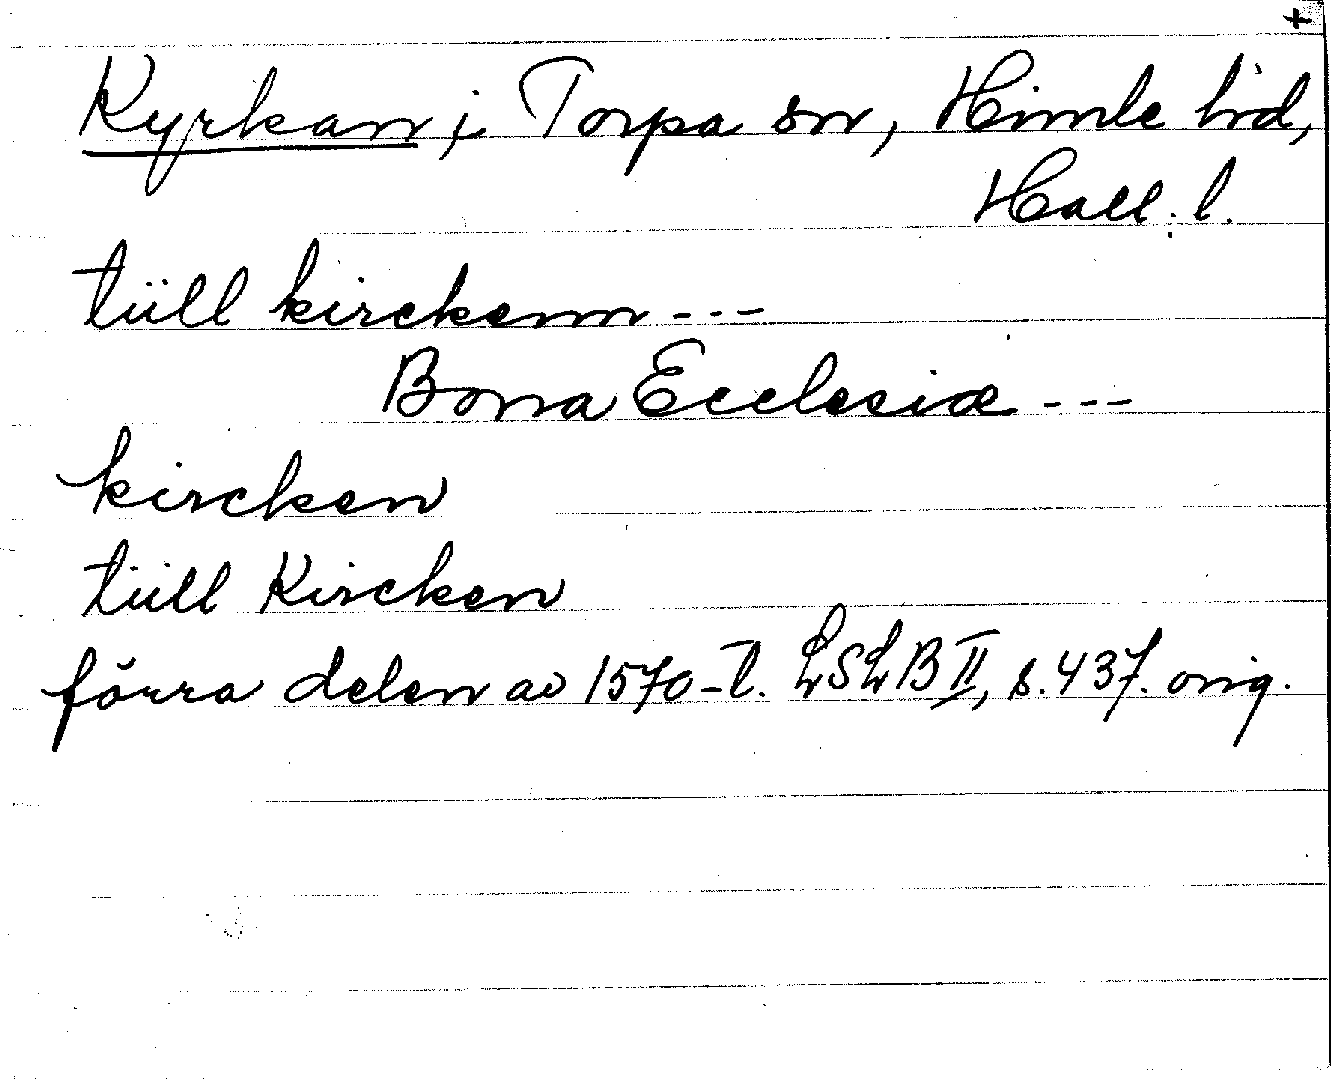 +
Kyrkan, i Torpa sn, Himle hd,
Hall. l.
tüll kirckenn - - -
Bona Ecclesiæ - - -
kircken
tüll Kircken
förra delen av 1570-t. LSLB II, s. 437. orig.